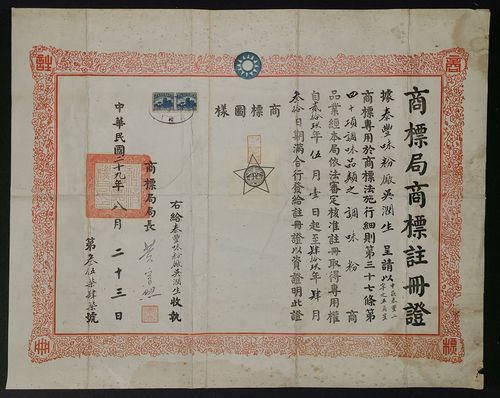 商標局商標註冊證
據泰豐味粉廠吳潤生呈請以
商標專用於商標法施行細則第三十七條第
四十項調味品類之調味粉商
品業經本局依法審定核准註冊取得專用權
自貳拾玖年伍月壹日起至肆拾玖年肆月
叁拾日期滿合行發給註冊證以資證明此證
商標圖樣
右給泰豐味粉廠吳潤生收執
商標局局長
中華民國二十九年八月二十三日
第叁伍柒肆柒號